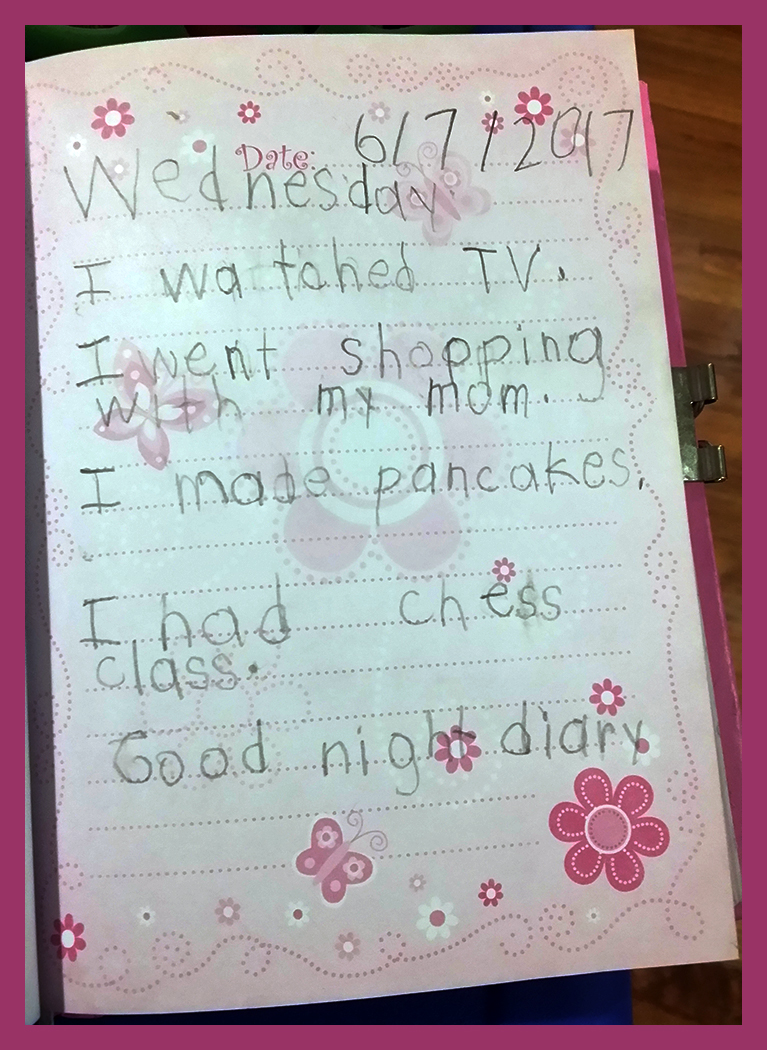 Date: 6/7/2017
Wednesday
I watched TV.
I went shopping
with my mom.
I made pancakes.
I had chess
class.
Good night diary